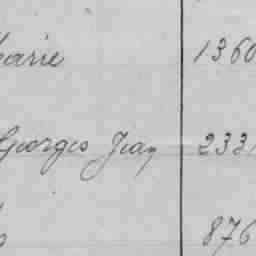 Marie 1360
Georges Jean 233
876